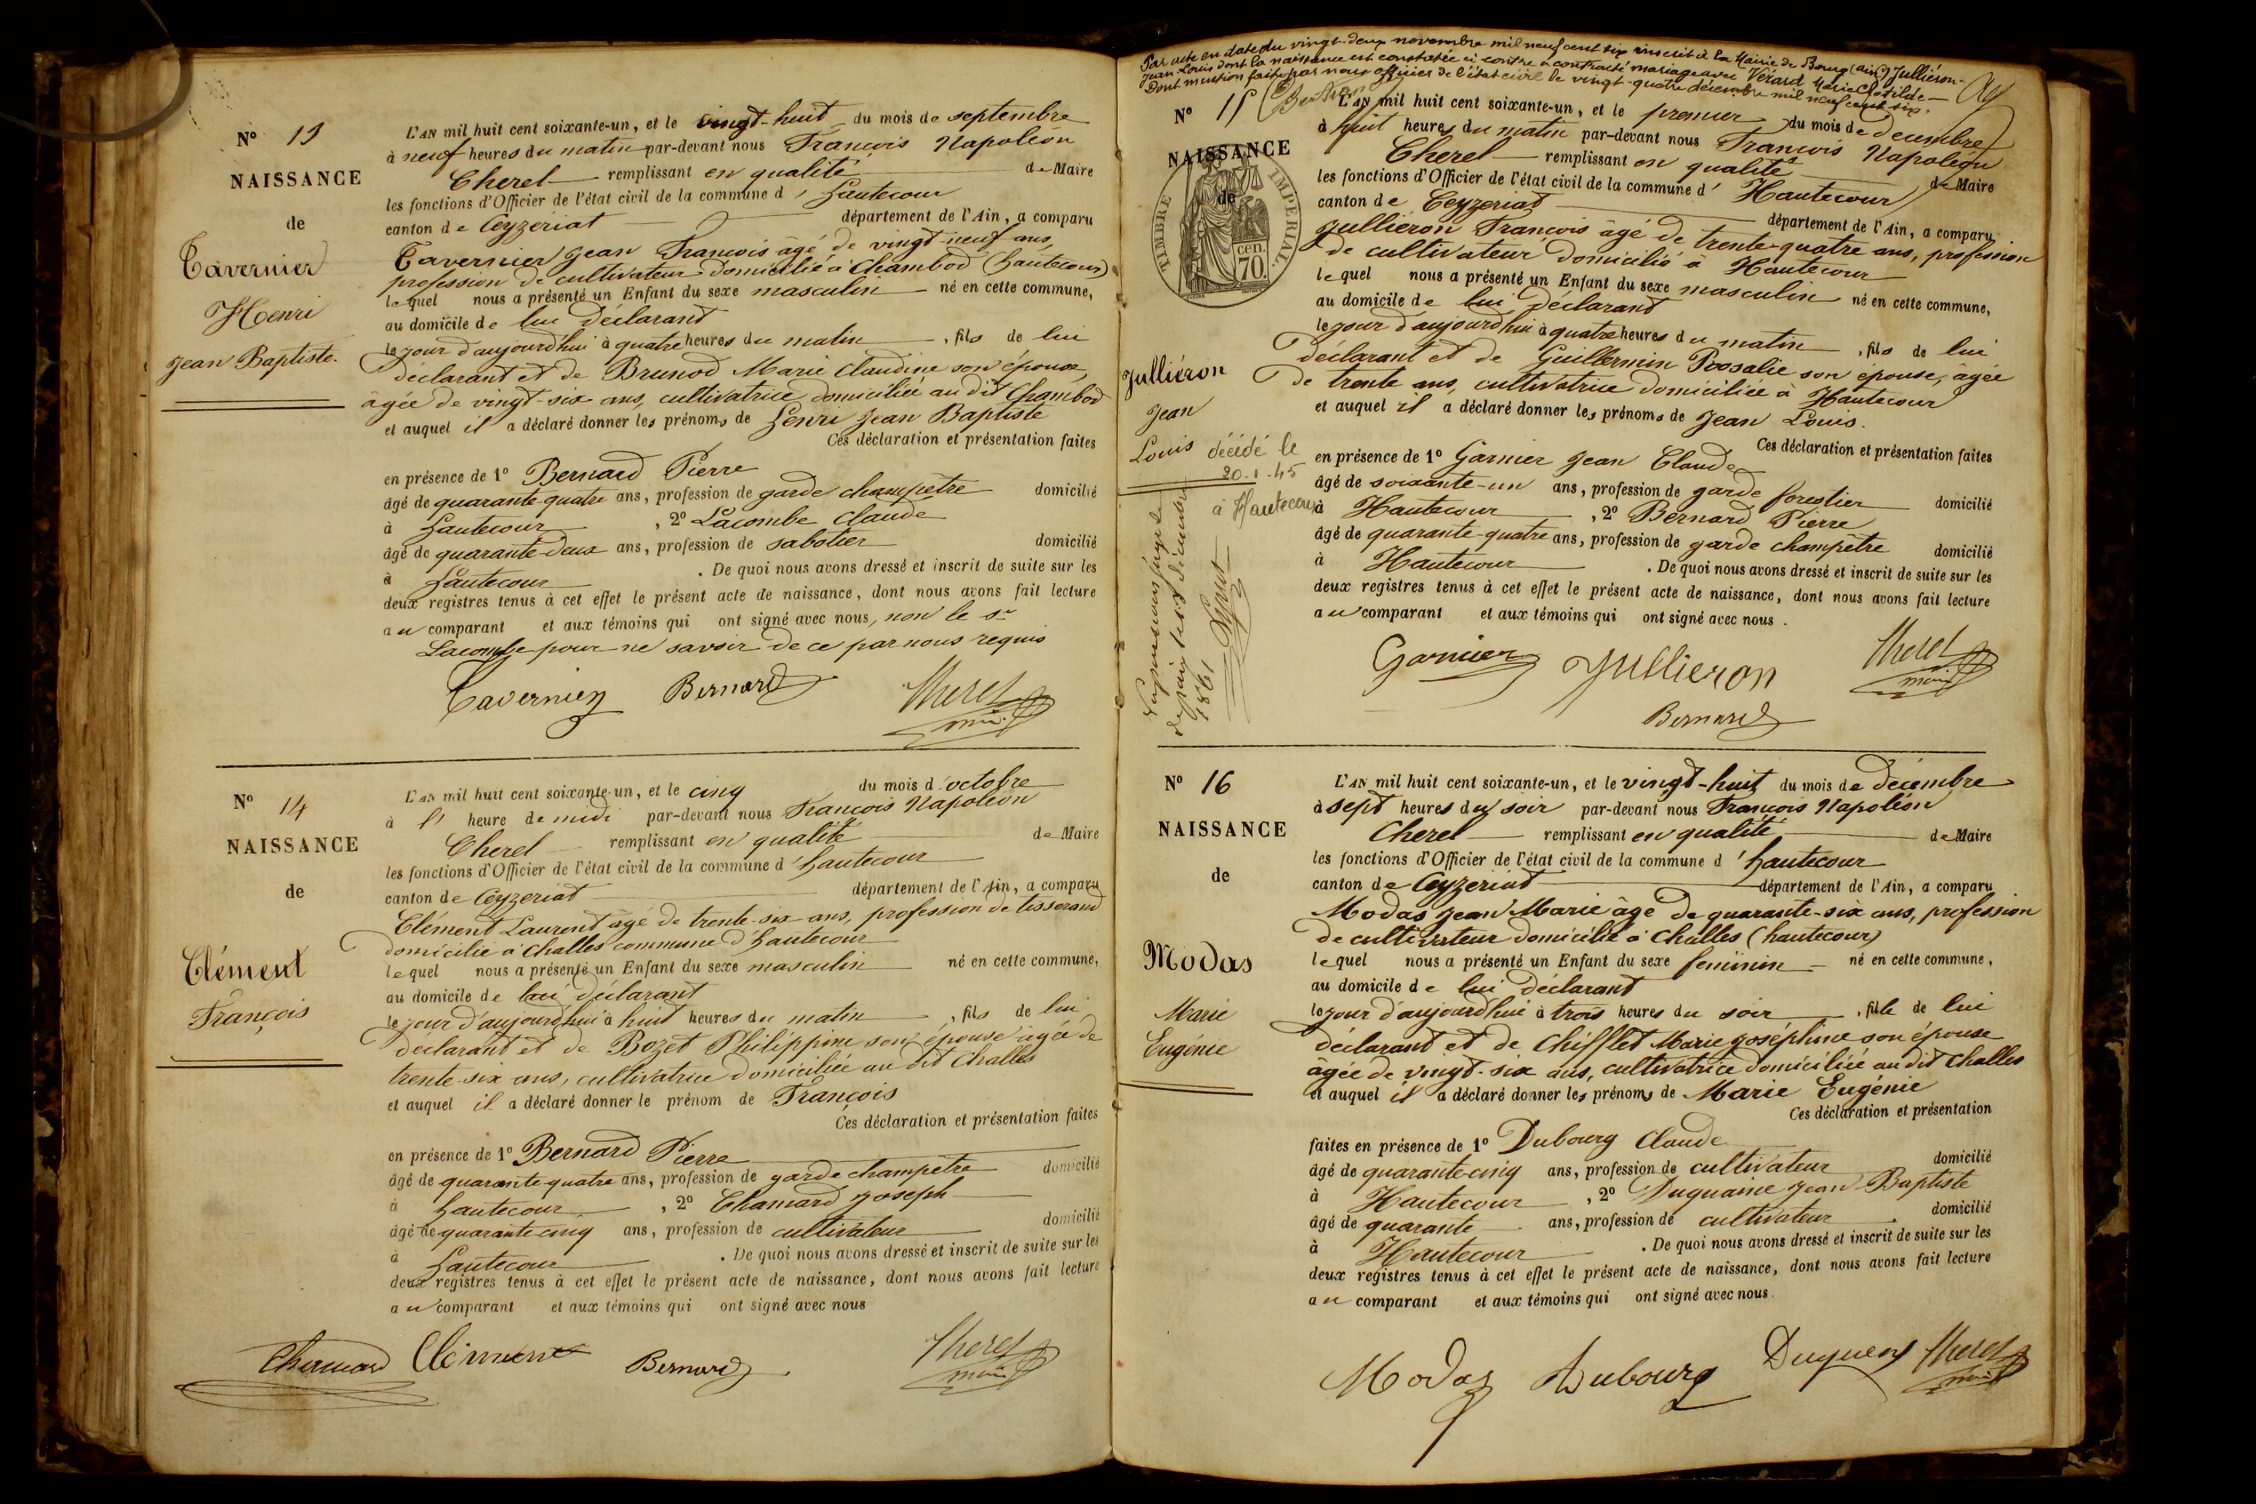 N° 13
NAISSANCE
de
Tavernier
Henri
Jean Baptiste.
L'AN mil huit cent soixante-un, et le vingt-huit du mois de septembre
à neuf heures du matin par-devant nous François Napoléon
Cherel remplissant en qualité de Maire
les fonctions d'Officier de l'état civil de la commune d'hautecour
canton de Ceyzeriat département de l'Ain, a comparu
Tavernier Jean François âgé de vingt-neuf ans,
profession de cultivateur domicilié à Chambod (hautecour)
lequel nous a présenté un Enfant du sexe masculin né en cette commune,
au domicile de lui déclarant
le jour d'aujourd'hui à quatre heures du matin, fils de lui
déclarant et de Brunod Marie Claudine son épouse,
âgée de vingt-six ans, cultivatrice domiciliée au dit Chambod
et auquel il a déclaré donner les prénoms de henri Jean Baptiste
Ces déclaration et présentation faites
en présence de 1° Bernard Pierre
âgé de quarante-quatre ans, profession de garde champêtre domicilié
à hautecour, 2° Lacombe Claude
âgé de quarante-deux ans, profession de sabotier domicilié
à hautecour. De quoi nous avons dressé et inscrit de suite sur les
deux registres tenus à cet effet le présent acte de naissance, dont nous avons fait lecture
au comparant et aux témoins qui ont signé avec nous, non le sr
Lacombe pour ne savoir de ce par nous requis
Tavernier Bernard Cherel
maire
N° 14
NAISSANCE
de
Clément
François
L'AN mil huit cent soixante-un, et le cinq du mois d'octobre
à l' heure de midi par-devant nous François Napoléon
Cherel remplissant en qualité de Maire
les fonctions d'Officier de l'état civil de la commune d'hautecour
canton de Ceyzeriat département de l'Ain, a comparu
Clément Laurent âgé de trente-six ans, profession de tisserand
domicilié à Challes commune d'hautecour
lequel nous a présenté un Enfant du sexe masculin né en cette commune,
au domicile de lui déclarant
le jour d'aujourd'hui à huit heures du matin, fils de lui
déclarant et de Bozet Philippine son épouse âgée de
trente-six ans, cultivatrice domiciliée au dit Challes
et auquel il a déclaré donner le prénom de François
Ces déclaration et présentation faites
en présence de 1° Bernard Pierre
âgé de quarante-quatre ans, profession de garde champêtre domicilié
à hautecour, 2° Chanard Joseph
âgé de quarante-cinq ans, profession de cultivateur domicilié
à hautecour. De quoi nous avons dressé et inscrit de suite sur les
deux registres tenus à cet effet le présent acte de naissance, dont nous avons fait lecture
au comparant et aux témoins qui ont signé avec nous
Chanard Clément Bernard Cherel
maire
Par acte en date du vingt-deux novembre mil neuf cent six inscrit à la Mairie de Bourg (Ain) Julliéron-
Jean Louis dont la naissance est constatée ci-contre a contracté mariage avec Vérard Marie Clotilde-
Dont mention faite par nous officier de l'état civil le vingt-quatre décembre mil neuf cent six.
N° 15
NAISSANCE
de
TIMBRE IMPÉRIAL
70 cen.
Julliéron
Jean
Louis
décédé le
20-1-45
à Hautecour
1861
L'AN mil huit cent soixante-un, et le premier du mois de décembre
à huit heures du matin par-devant nous François Napoléon
Cherel remplissant en qualité de Maire
les fonctions d'Officier de l'état civil de la commune d'Hautecour
canton de Ceyzeriat département de l'Ain, a comparu
Julliéron François âgé de trente-quatre ans, profession
de cultivateur domicilié à Hautecour
lequel nous a présenté un Enfant du sexe masculin né en cette commune,
au domicile de lui déclarant
le jour d'aujourd'hui à quatre heures du matin, fils de lui
déclarant et de Guillermin Rosalie son épouse, âgée
de trente ans, cultivatrice domiciliée à Hautecour
et auquel il a déclaré donner les prénoms de Jean Louis.
Ces déclaration et présentation faites
en présence de 1° Garnier Jean Claude
âgé de soixante-un ans, profession de garde forestier domicilié
à Hautecour, 2° Bernard Pierre
âgé de quarante-quatre ans, profession de garde champêtre domicilié
à Hautecour. De quoi nous avons dressé et inscrit de suite sur les
deux registres tenus à cet effet le présent acte de naissance, dont nous avons fait lecture
au comparant et aux témoins qui ont signé avec nous.
Garnier Jullieron Cherel
maire
Bernard
N° 16
NAISSANCE
de
Modas
Marie
Eugénie
L'AN mil huit cent soixante-un, et le vingt-huit du mois de décembre
à sept heures du soir par-devant nous François Napoléon
Cherel remplissant en qualité de Maire
les fonctions d'Officier de l'état civil de la commune d'hautecour
canton de Ceyzeriat département de l'Ain, a comparu
Modas Jean Marie âgé de quarante-six ans, profession
de cultivateur domicilié à Challes (hautecour)
lequel nous a présenté un Enfant du sexe feminin né en cette commune,
au domicile de lui déclarant
le jour d'aujourd'hui à trois heures du soir, fille de lui
déclarant et de Chifflet Marie Joséphine son épouse
âgée de vingt-six ans, cultivatrice domiciliée au dit Challes
et auquel il a déclaré donner les prénoms de Marie Eugénie
Ces déclaration et présentation
faites en présence de 1° Dubourg Claude
âgé de quarante-cinq ans, profession de cultivateur domicilié
à Hautecour, 2° Duquaine Jean Baptiste
âgé de quarante ans, profession de cultivateur domicilié
à Hautecour. De quoi nous avons dressé et inscrit de suite sur les
deux registres tenus à cet effet le présent acte de naissance, dont nous avons fait lecture
au comparant et aux témoins qui ont signé avec nous.
Modas Dubourg Duquens Cherel
maire